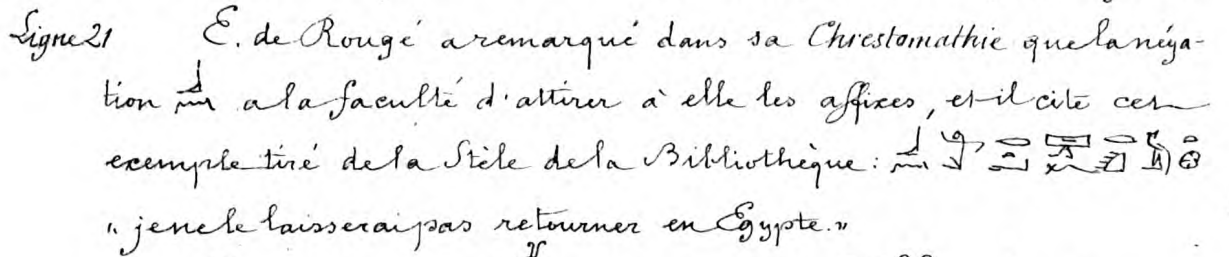 Ligne 21 E. de Rougé a remarqué dans sa Chrestomathie que la néga-
tion a la faculté d'attirer à elle les affixes, et il cite cet
exemple tiré de la Stèle de la Bibliothèque :
« je ne le laisserai pas retourner en Égypte. »